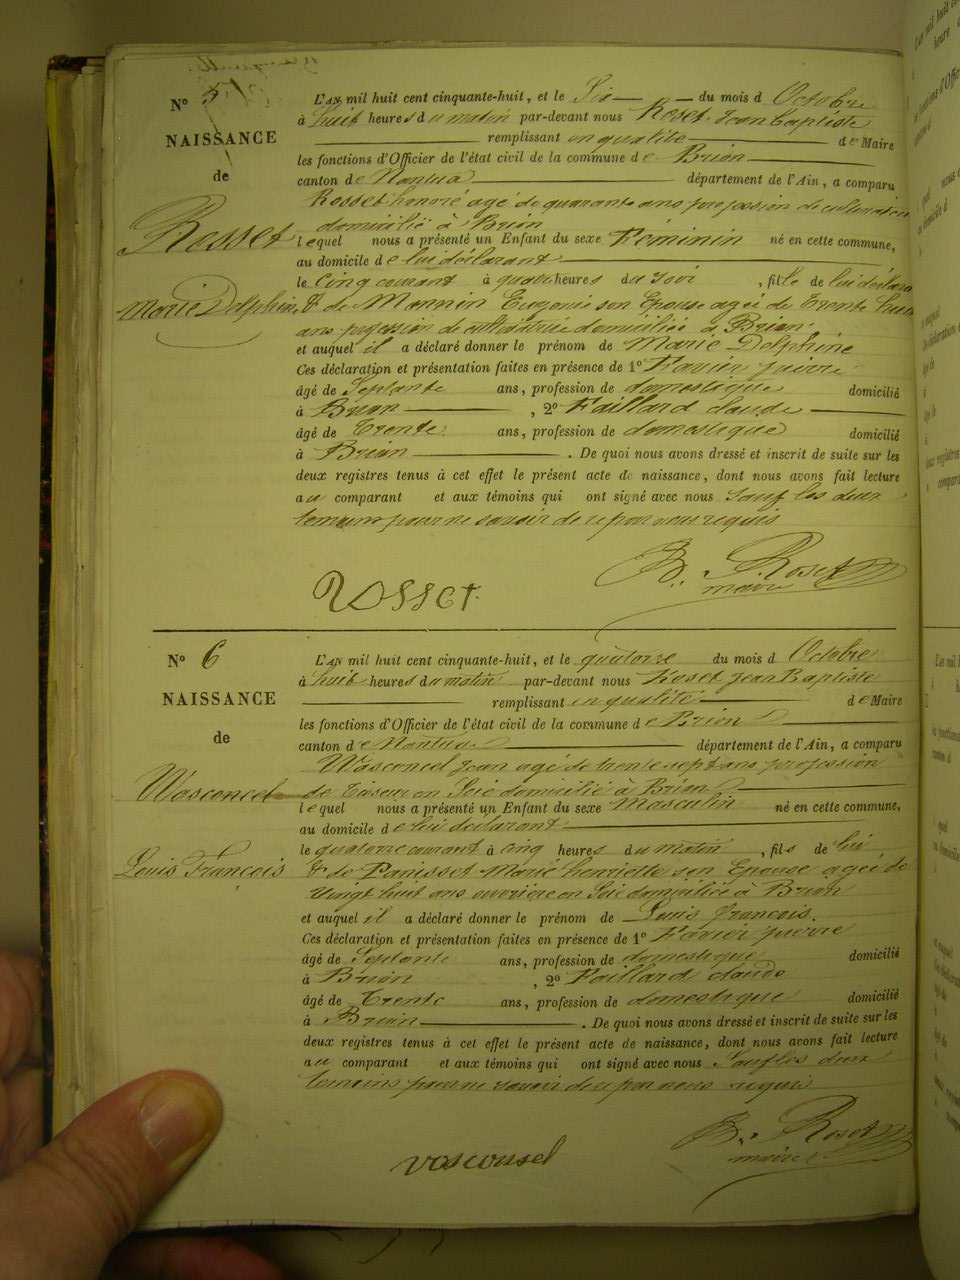 N° 5
NAISSANCE
de
Rosset
Marie Delphine
L'AN mil huit cent cinquante-huit, et le Six du mois d Octobre
à huit heures du matin par-devant nous Roset Jean Baptiste
remplissant en qualité de Maire
les fonctions d'Officier de l'état civil de la commune de Brion
canton de Nantua département de l'Ain, a comparu
Rosset honoré agé de quarante ans profession de cultivateur
domicilié à Brion
lequel nous a présenté un Enfant du sexe Féminin né en cette commune,
au domicile de lui déclarant
le Cinq courant à quatre heures du Soir, fille de lui déclarant
& de Mannin Eugenie son Epouse agée de trente huit
ans profession de cultivatrice domiciliée à Brion
et auquel il a déclaré donner le prénom de Marie Delphine
Ces déclaration et présentation faites en présence de 1° Favier pierre
âgé de Septante ans, profession de domestique domicilié
à Brion, 2° Faillard claude
âgé de Trente ans, profession de domestique domicilié
à Brion. De quoi nous avons dressé et inscrit de suite sur les
deux registres tenus à cet effet le présent acte de naissance, dont nous avons fait lecture
au comparant et aux témoins qui ont signé avec nous Sauf les deux
temoins pour ne savoir de ce par nous requis
Rosset
B. Roset
maire
N° 6
NAISSANCE
de
Wasconcel
Louis François
L'AN mil huit cent cinquante-huit, et le quatorze du mois d Octobre
à huit heures du matin par-devant nous Roset Jean Baptiste
remplissant en qualité de Maire
les fonctions d'Officier de l'état civil de la commune de Brion
canton de Nantua département de l'Ain, a comparu
Wasconcel Jean agé de trente sept ans profession
de Tisseur en Soie domicilié à Brion
lequel nous a présenté un Enfant du sexe Masculin né en cette commune,
au domicile de lui déclarant
le quatorze courant à cinq heures du matin, fils de lui
& de Panisset Marie henriette son Epouse agée de
vingt huit ans ouvrière en Soie domiciliée à Brion
et auquel il a déclaré donner le prénom de Louis françois.
Ces déclaration et présentation faites en présence de 1° Favier pierre
âgé de Septante ans, profession de domestique domicilié
à Brion, 2° Faillard claude
âgé de Trente ans, profession de domestique domicilié
à Brion. De quoi nous avons dressé et inscrit de suite sur les
deux registres tenus à cet effet le présent acte de naissance, dont nous avons fait lecture
au comparant et aux témoins qui ont signé avec nous Sauf les deux
temoins pour ne savoir de ce par nous requis
vasconsel
B. Roset
maire